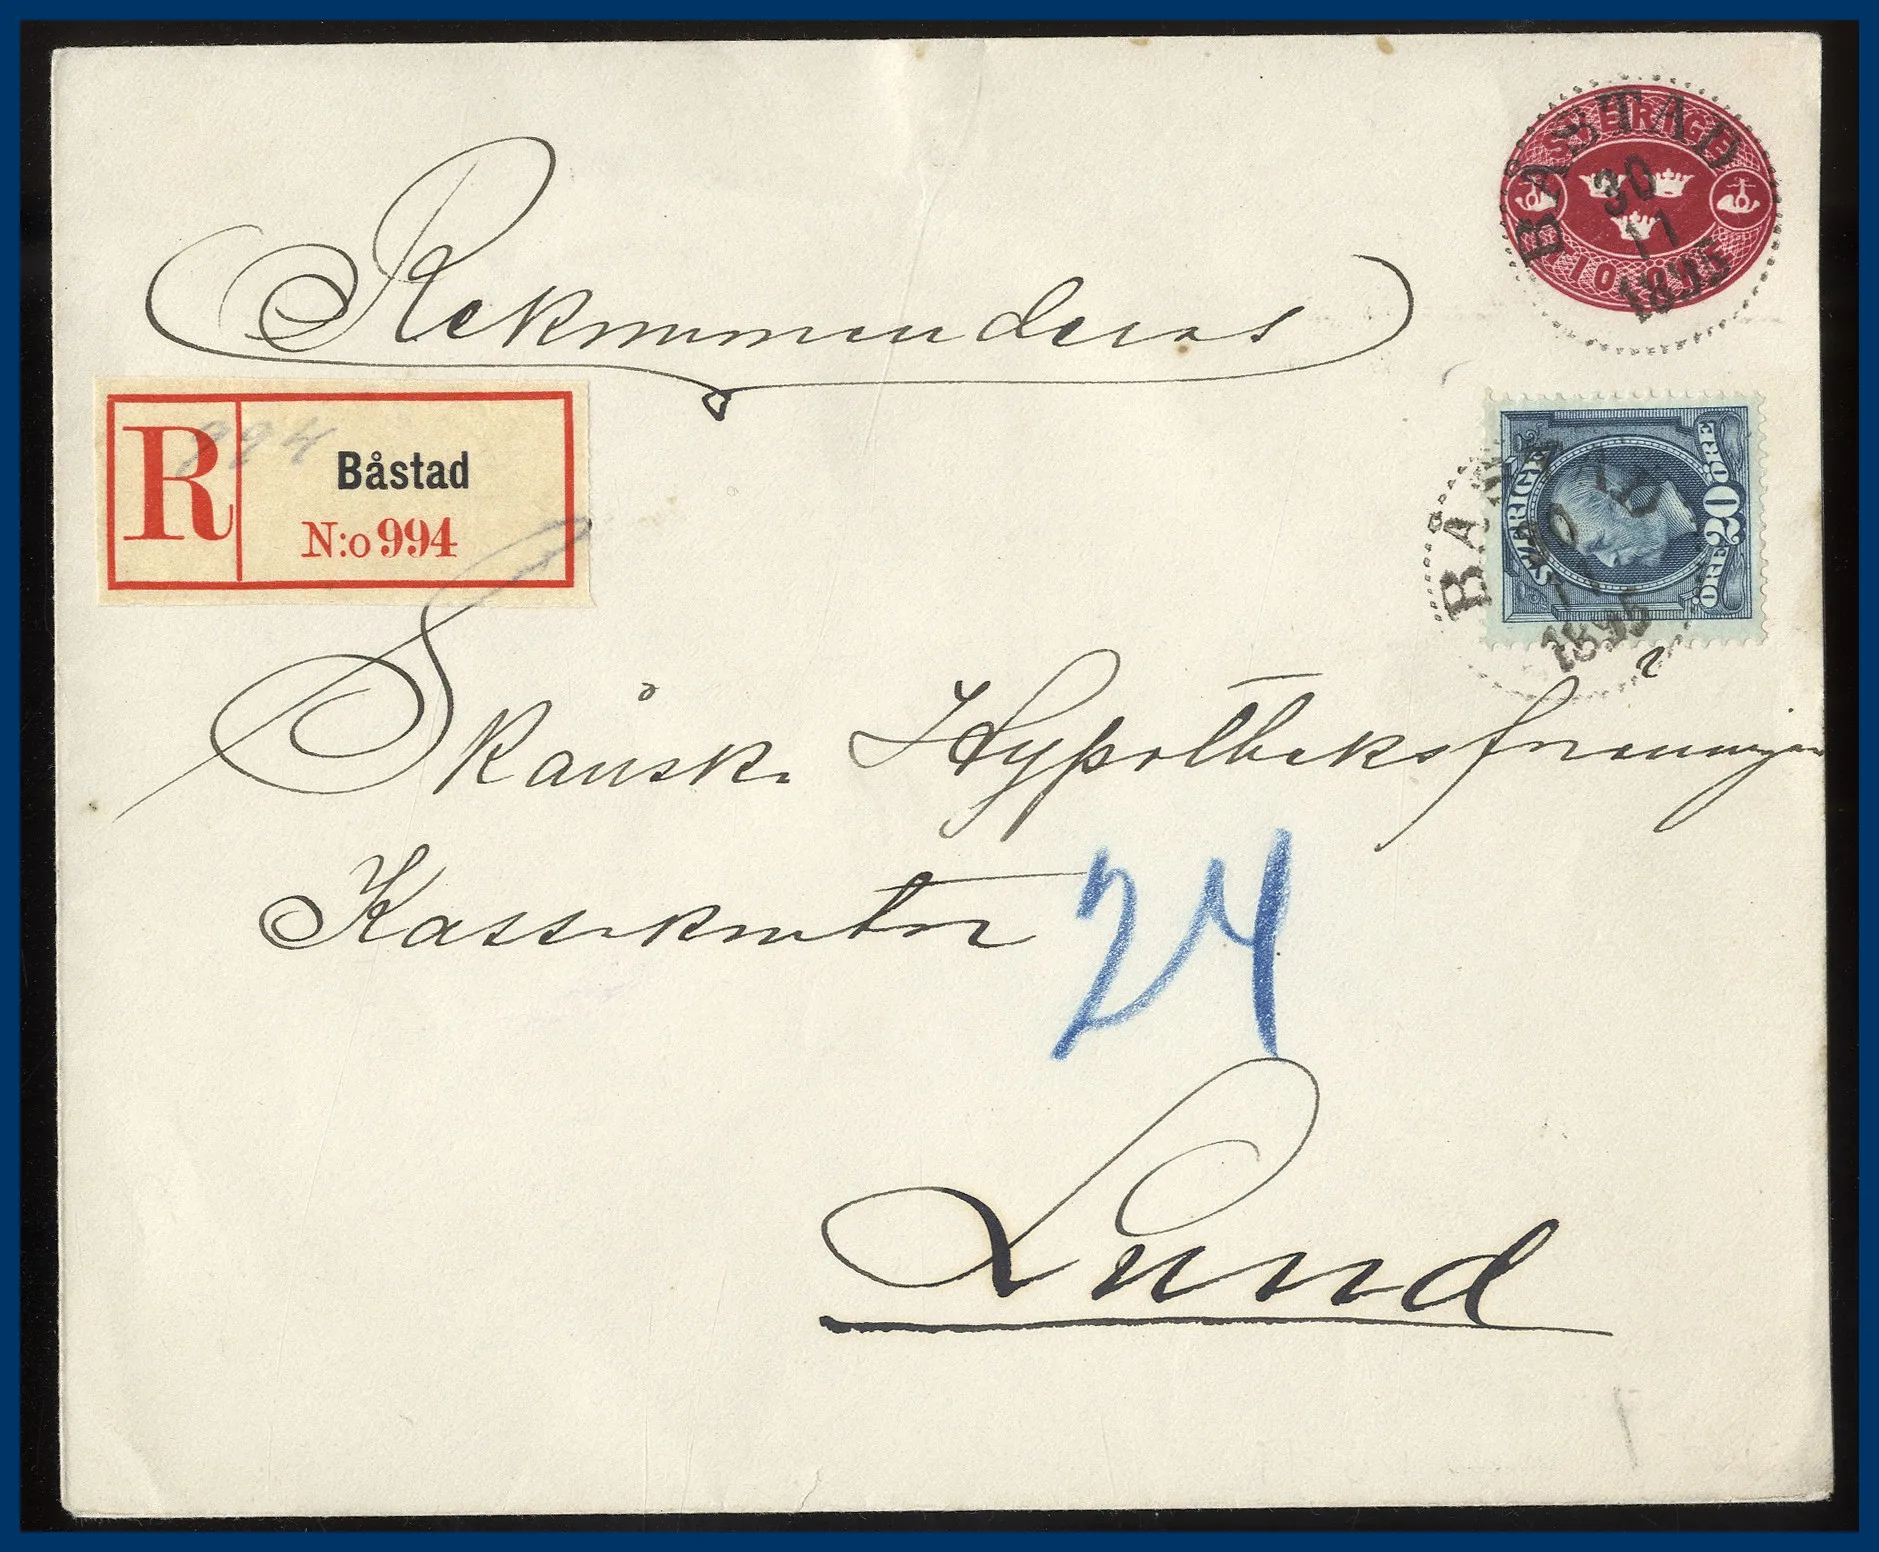 Rekommenderas
SVERIGE
10 ÖRE
BÅSTAD
30
11
1895
R 994 Båstad
N:o 994
SVERIGE
20
ÖRE ÖRE
BÅSTAD
30
11
1895
Skånska Hypotheksföreningens
Kassakontor
24
Lund